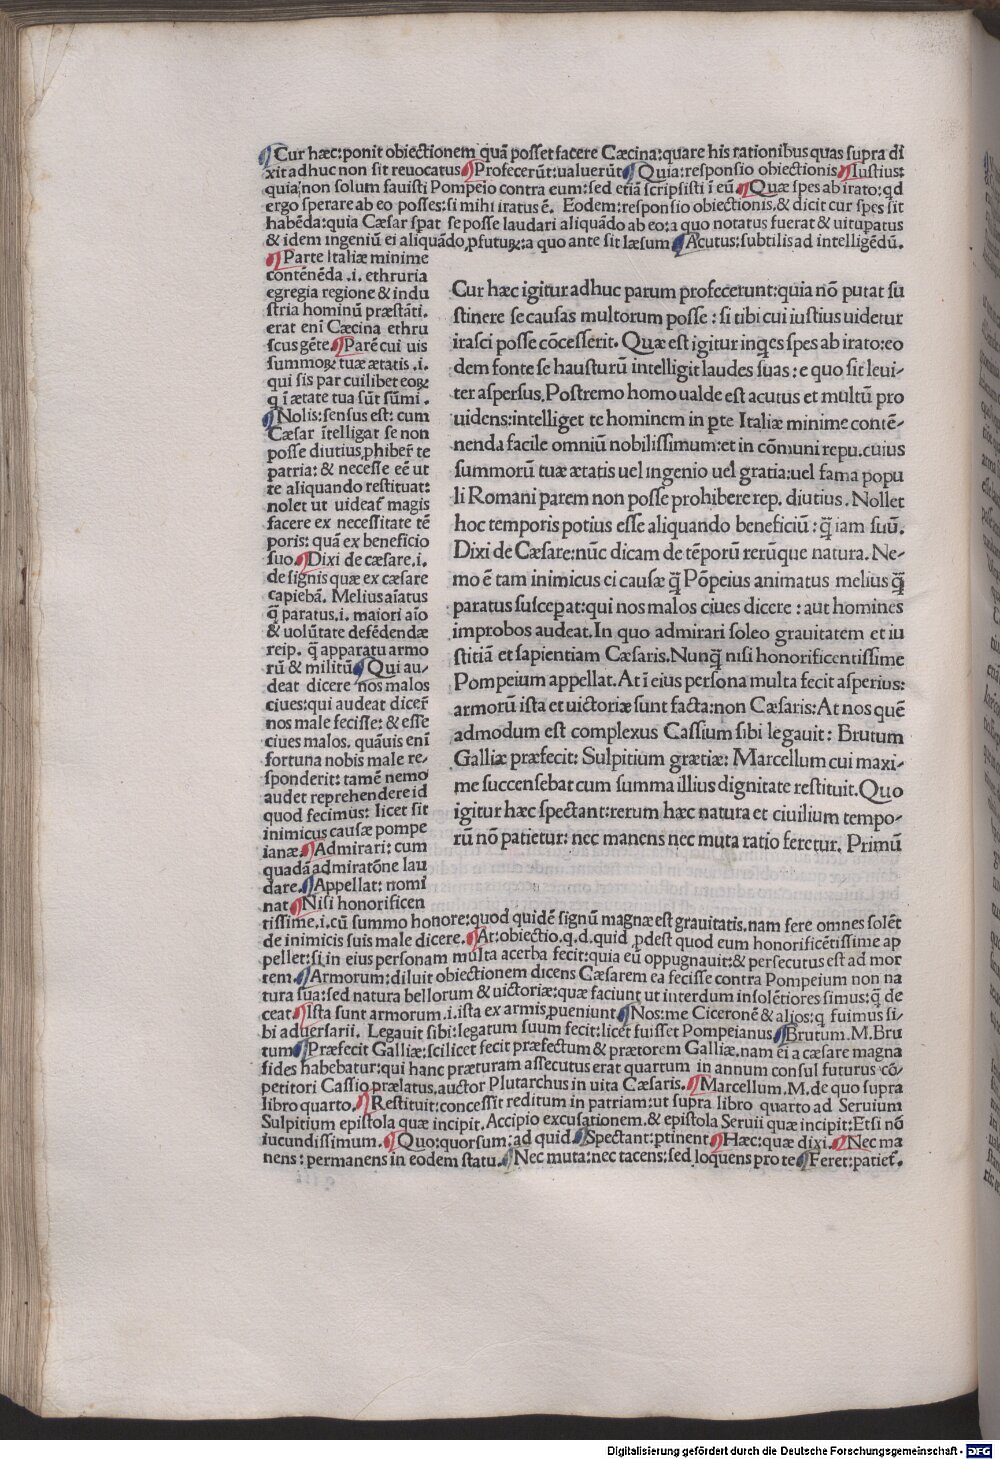 ¶Cur hæc:ponit obiectionem quã posset facere Cæcina:quare his rationibus quas supra di
xit adhuc non sit reuocatus¶Profecerũt:ualuerũt¶Quia:responsio obiectionis¶Iustius:
quia non solum fauisti Pompeio contra eum:sed etiã scripsisti ĩ eũ.¶Quæ spes ab irato:qd
ergo sperare ab eo posses:si mihi iratus ẽ. Eodem:responsio obiectionis,& dicit cur spes sit
habẽda:quia Cæsar spat se posse laudari aliquãdo ab eo:a quo notatus fuerat & uitupatus
& idem ingeniũ ei aliquãdo ꝓfuturꝝ:a quo ante sit læsum¶Acutus:subtilis ad intelligẽdũ.
¶Parte Italiæ minime
contẽnẽda .i. ethruria
egregia regione & indu
stria hominũ præstãti.
erat enĩ Cæcina ethru
scus gẽte.¶Parẽ cui uis
summoꝝ tuæ ætatis .i.
qui sis par cuilibet eoꝝ
q ĩ ætate tua sũt sũmi .
¶Nolis:sensus est: cum
Cæsar ĩtelligat se non
posse diutius ꝓhiber̃ te
patria: & necesse eẽ ut
te aliquando restituat:
nolet ut uideat̃ magis
facere ex necessitate tẽ
poris: quã ex beneficio
suo.¶Dixi de cæsare.i.
de signis quæ ex cæsare
capiebã. Melius aĩatus
q̃ paratus.i. maiori aĩo
& uolũtate defẽdendæ
reip. q̃ apparatu armo
rũ & militũ¶Qui au-
deat dicere nos malos
ciues:qui audeat dicer̃
nos male fecisse: & esse
ciues malos. quãuis enĩ
fortuna nobis male re-
sponderit: tamẽ nemo
audet reprehendere id
quod fecimus: licet sit
inimicus causæ pompe
ianæ.¶Admirari: cum
quadã admiratõne lau
dare.¶Appellat: nomi
nat¶Nisi honorificen
tissime.i.cũ summo honore:quod quidẽ signũ magnæ est grauitatis.nam fere omnes solẽt
de inimicis suis male dicere.¶At:obiectio.q.d.quid ꝓdest quod eum honorificẽtissime ap
pellet:si in eius personam multa acerba fecit:quia eũ oppugnauit:& persecutus est ad mor
tem.¶Armorum:diluit obiectionem dicens Cæsarem ea fecisse contra Pompeium non na
tura sua:sed natura bellorum & uictoriæ:quæ faciunt ut interdum insolẽtiores simus:q̃ de
ceat¶Ista sunt armorum.i.ista ex armis ꝓueniunt¶Nos:me Ciceronẽ & alios:q fuimus si-
bi aduersarii. Legauit sibi:legatum suum fecit:licet fuisset Pompeianus¶Brutum.M.Bru
tum¶Præfecit Galliæ:scilicet fecit præfectum & prætorem Galliæ.nam eĩ a cæsare magna
fides habebatur:qui hanc præturam assecutus erat quartum in annum consul futurus cõ-
petitori Cassio prælatus.auctor Plutarchus in uita Cæsaris.¶Marcellum.M.de quo supra
libro quarto.¶Restituit:concessit reditum in patriam:ut supra libro quarto ad Seruium
Sulpitium epistola quæ incipit.Accipio excusationem.& epistola Seruii quæ incipit:Etsi nõ
iucundissimum.¶Quo:quorsum:ad quid¶Spectant:ptinent¶Hæc:quæ dixi.¶Nec ma
nens:permanens in eodem statu.¶Nec muta:nec tacens:sed loquens pro te¶Feret:patiet̃.
Cur hæc igitur adhuc parum profecerunt:quia nõ putat su
stinere se causas multorum posse : si tibi cui iustius uidetur
irasci posse cõcesserit. Quæ est igitur inqes spes ab irato:eo
dem fonte se hausturũ intelligit laudes suas : e quo sit leui-
ter aspersus.Postremo homo ualde est acutus et multũ pro
uidens:intelliget te hominem in pte Italiæ minime contẽ-
nenda facile omniũ nobilissimum:et in cõmuni repu.cuius
summorũ tuæ ætatis uel ingenio uel gratia:uel fama popu
li Romani parem non posse prohibere rep. diutius . Nollet
hoc temporis potius esse aliquando beneficiũ : q̃ iam suũ.
Dixi de Cæsare:nũc dicam de tẽporũ rerũque natura. Ne-
mo ẽ tam inimicus ei causæ q̃ Põpeius animatus melius q̃
paratus suscepat:qui nos malos ciues dicere : aut homines
improbos audeat.In quo admirari soleo grauitatem et iu
stitiã et sapientiam Cæsaris.Nunq̃ nisi honorificentissime
Pompeium appellat.At ĩ eius persona multa fecit asperius:
armorũ ista et uictoriæ sunt facta:non Cæsaris:At nos quẽ
admodum est complexus Cassium sibi legauit : Brutum
Galliæ præfecit: Sulpitium grætiæ: Marcellum cui maxi-
me succensebat cum summa illius dignitate restituit.Quo
igitur hæc spectant:rerum hæc natura et ciuilium tempo-
rũ nõ patietur: nec manens nec muta ratio feretur. Primũ
Digitalisierung gefördert durch die Deutsche Forschungsgemeinschaft - DFG